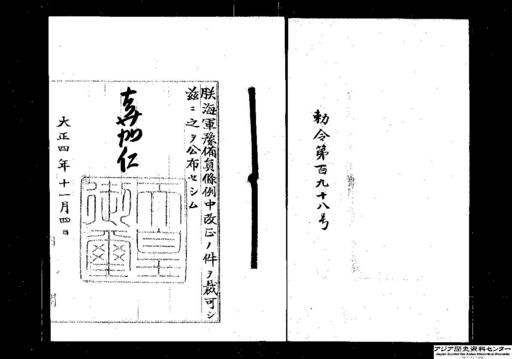 勅令第百九十八号
朕海軍豫備員條例中改正ノ件ヲ裁可シ
茲ニ之ヲ公布セシム
嘉仁
天皇御璽
大正四年十一月四日
アジア歴史資料センター
Japan Center for Asian Historical Records